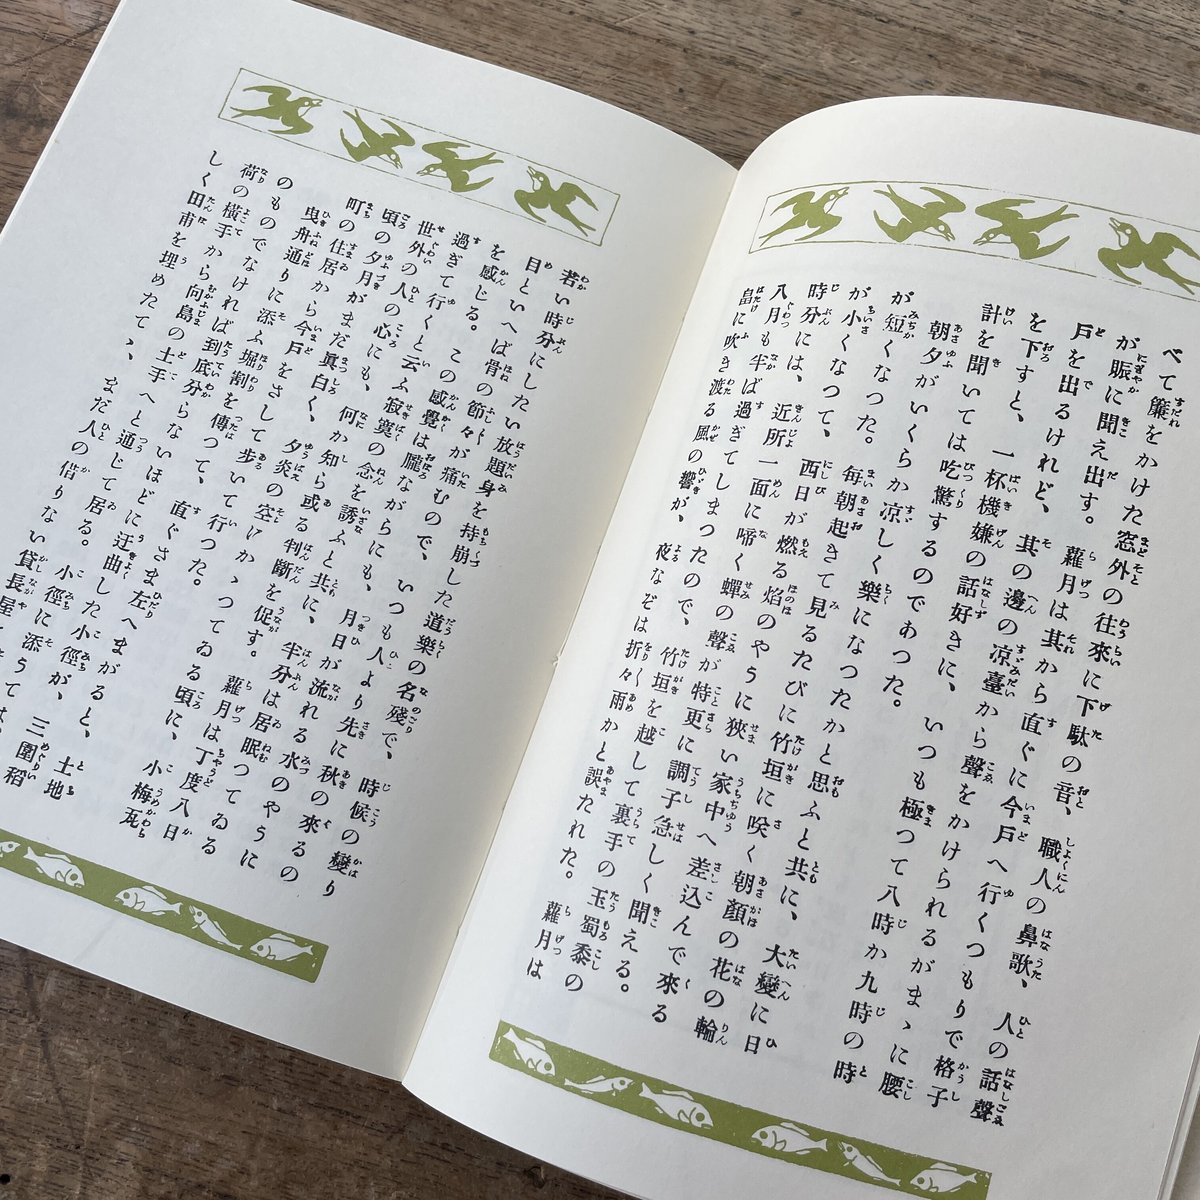 べて簾をかけた窓外の往來に下駄の音、職人の鼻歌、人の話聲
が賑に聞え出す。蘿月は其から直ぐに今戸へ行くつもりで格子
戸を出るけれど、其の邊の凉臺から聲をかけられるがまゝに腰
を下すと、一杯機嫌の話好きに、いつも極つて八時か九時の時
計を聞いては吃驚するのであつた。
朝夕がいくらか凉しく樂になつたかと思ふと共に、大變に日
が短くなつた。毎朝起きて見るたびに竹垣に咲く朝顏の花の輪
が小くなつて、西日が燃る焔のやうに狹い家中へ差込んで來る
時分には、近所一面に啼く蟬の聲が特更に調子急しく聞える。
八月も半ば過ぎてしまつたので、竹垣を越して裏手の玉蜀黍の
畠に吹き渡る風の響が、夜なぞは折々雨かと誤たれた。蘿月は
若い時分にしたい放題身を持崩した道樂の名殘で、時候の變り
目といへば骨の節々が痛むので、いつも人より先に秋の來るの
を感じる。この感覺は朧ながらにも、月日が流れる水のやうに
過ぎて行くと云ふ寂寞の念を誘ふと共に、半分は居眠つてゐる
世外の人の心にも、何か知ら或る判斷を促す。蘿月は丁度八日
頃の夕月がまだ眞白く、夕炎の空にかゝつてゐる頃に、小梅瓦
町の住居から今戸をさして歩いて行つた。
曳舟通りに添ふ堀割を傳つて、直ぐさま左へまがると、土地
のものでなければ到底分らないほどに迂曲した小徑が、三圍稻
荷の横手から向島の土手へと通じて居る。小徑に添うては、
しく田甫を埋めたて、、まだ人の借りない貸長屋